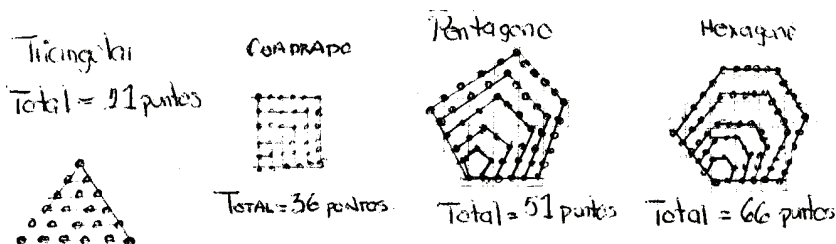 Triangular
Total = 21 puntos
CUADRADO
TOTAL = 36 PUNTOS
Pentagono
Total = 51 puntos
Hexagono
Total = 66 puntos